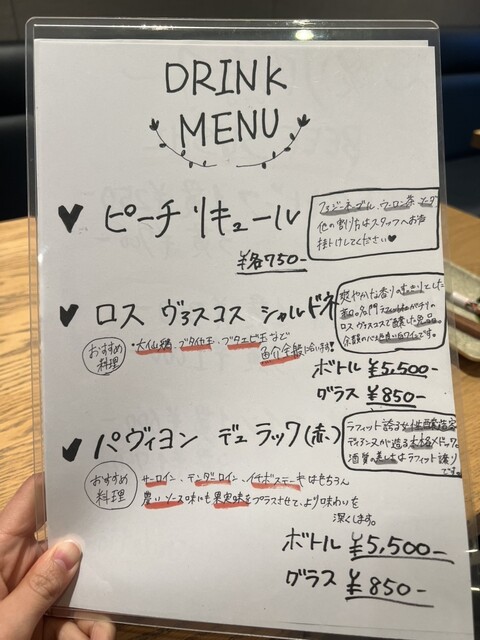 DRINK
MENU
♥ ピーチ リキュール
ファジーネーブル、ウーロン茶、ソーダ
他の割り方はスタッフへお声
掛けしてください♥
¥各750-
♥ ロス ヴァスコス シャルドネ
爽やかな香りの
ロス ヴァスコスで
白ワインです。
おすすめ
料理
・大山鶏、ブタバラ玉、ブタエビ玉など
魚介全般に合います!
ボトル ¥5,500-
グラス ¥850-
♥ パヴィヨン デュ ラック(赤)
ラフィット誇る女性醸造家
ディアンヌが造る本格メドック。
酒質の美しさはラフィット譲り
です。
おすすめ
料理
サーロイン、テンダーロイン、イチボステーキはもちろん
濃いソース味にも果実味をプラスさせて、より味わいを
深くします。
ボトル ¥5,500-
グラス ¥850-